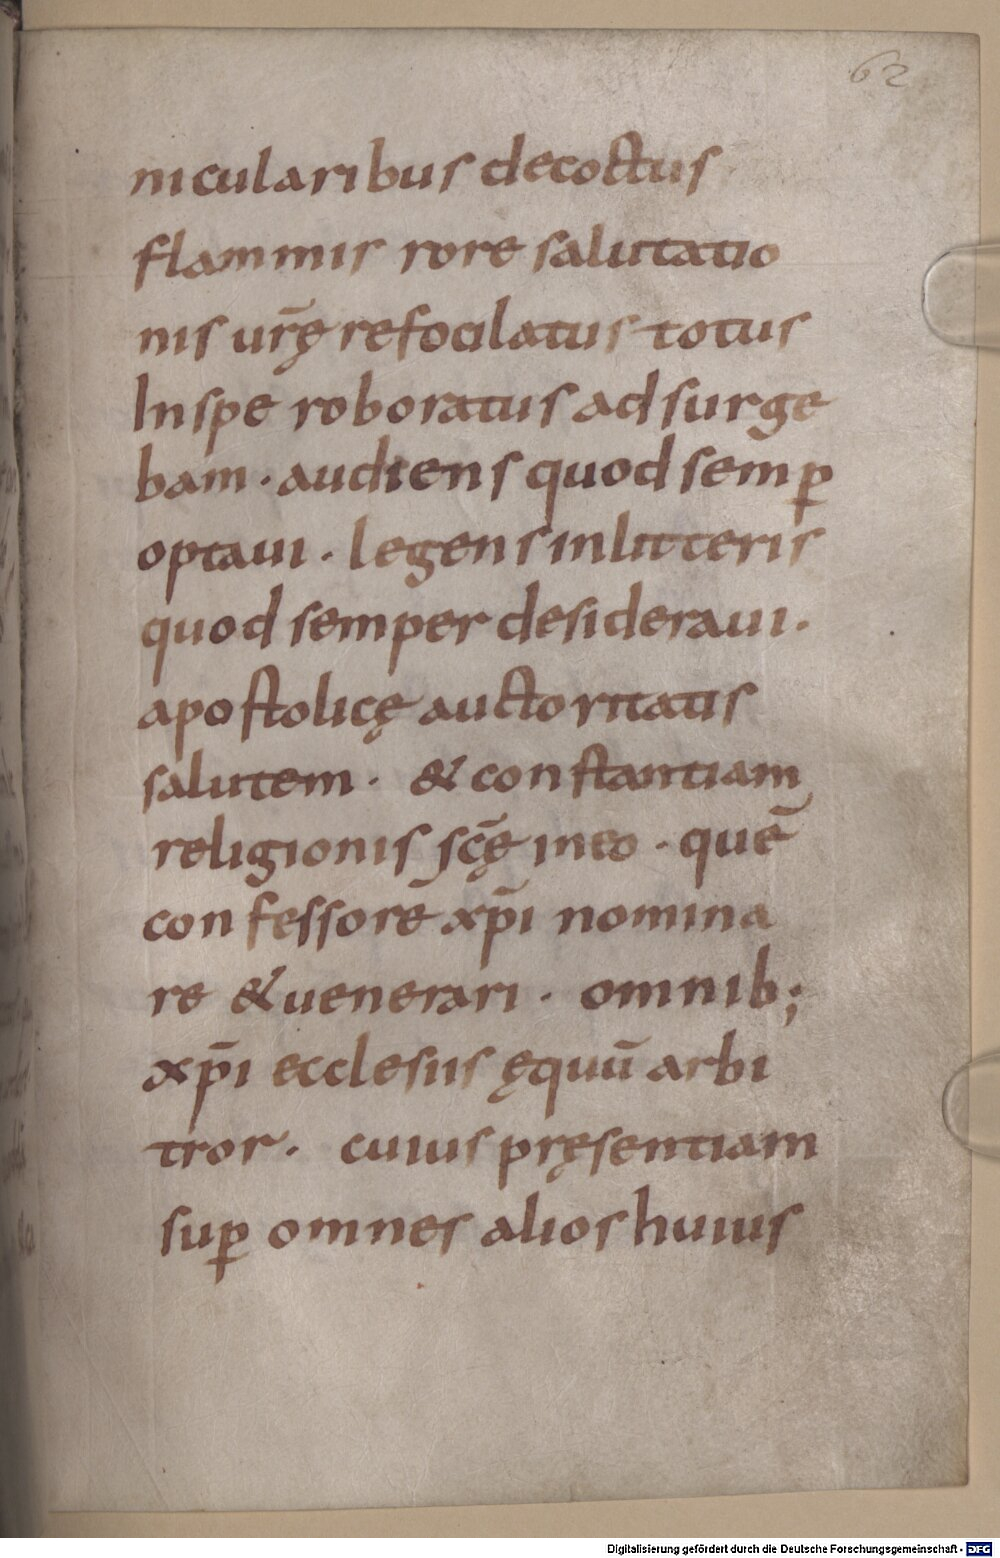 62
nicularibus decoctus
flammis rore salutatio
nis ur̄ę refocilatus totus
In spe roboratus adsurge
bam · audiens quod semꝑ
optaui · legens inlitteris
quod semper desideraui ·
apostolicę auctoritatis
salutem · & constantiam
religionis sc̄ę in eo · quē
confessorē xp̄i nomina
re & uenerari · omnib;
xp̄i ecclesiis ęquū arbi
tror · cuius pręsentiam
suꝑ omnes alios huius
Digitalisierung gefördert durch die Deutsche Forschungsgemeinschaft - DFG